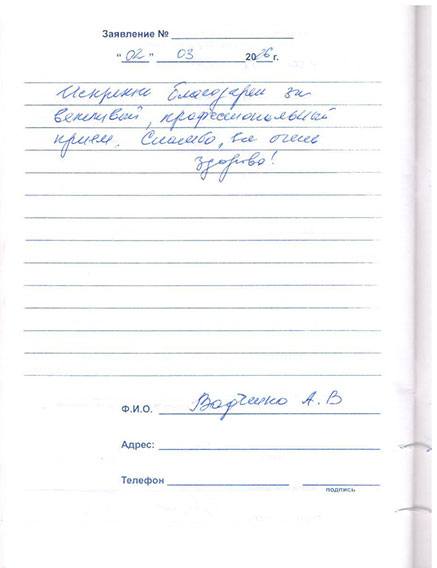 Заявление №
"02" 03 2026 г.
Искренне благодарен за
вежливый, профессиональный
прием. Спасибо, все очень
здорово!
Ф.И.О. А. В
Адрес:
Телефон
подпись